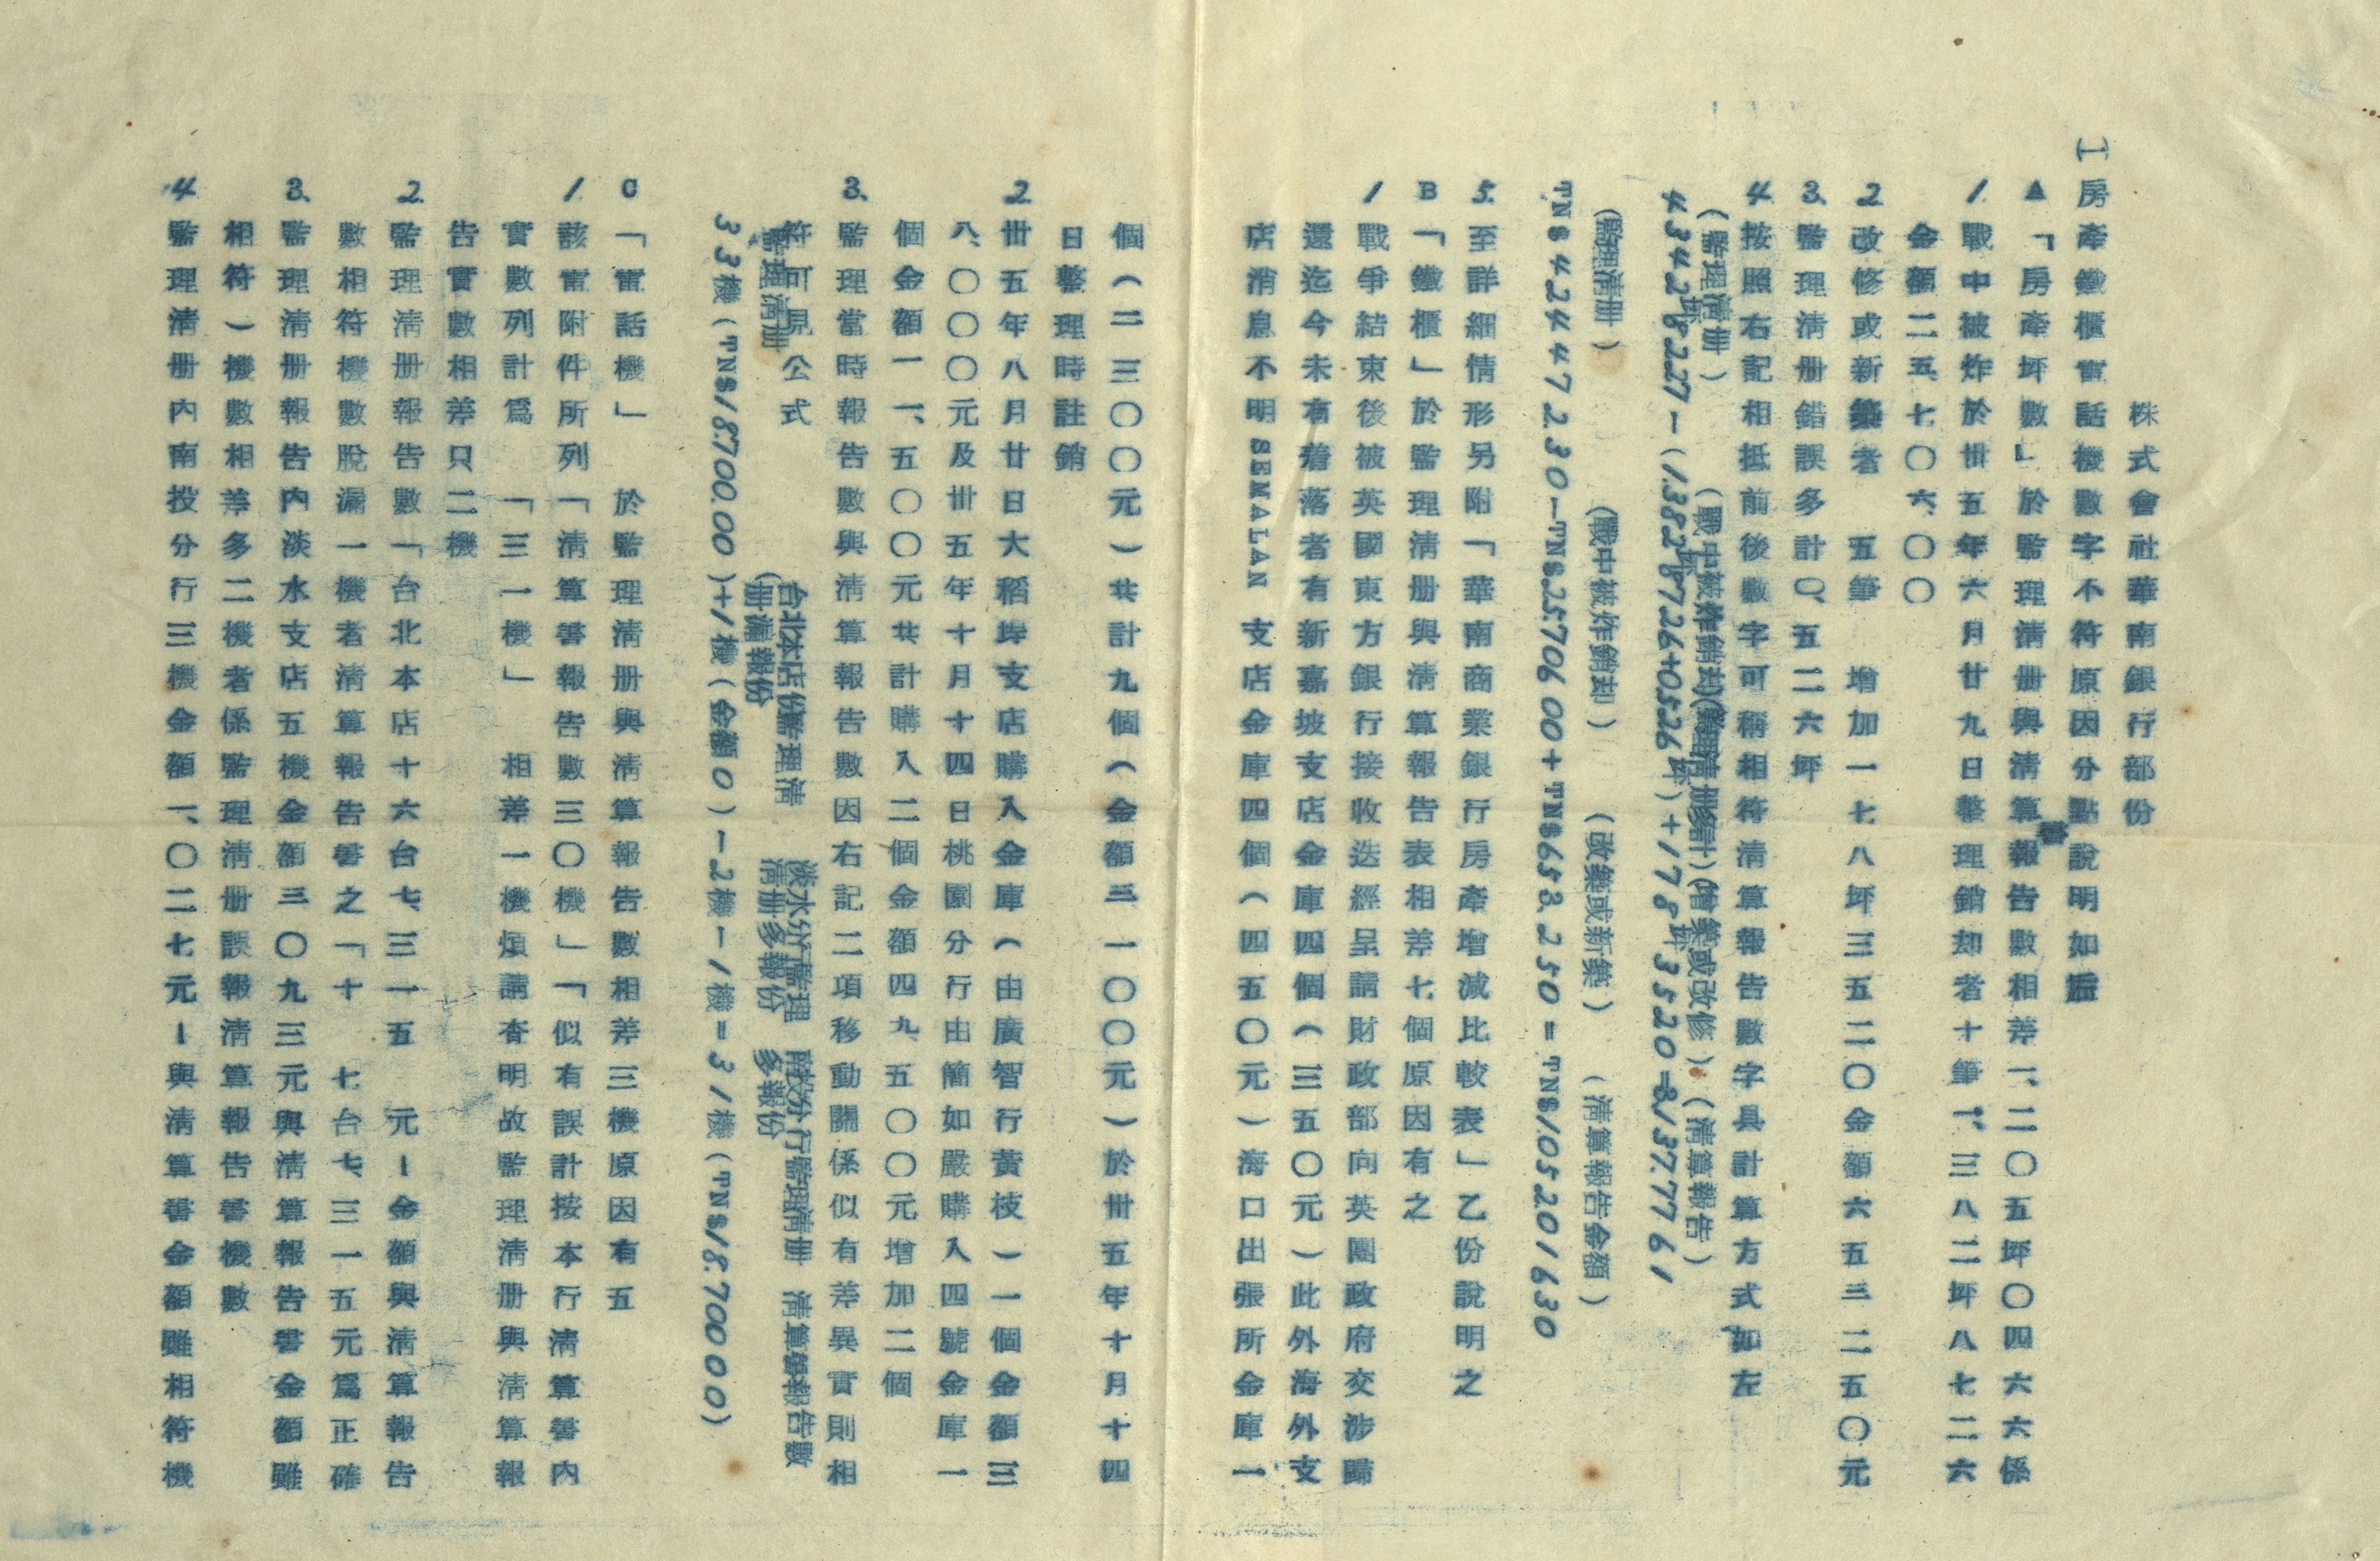 株式會社華南銀行部份
I房產鐵櫃電話機數字不符原因分點說明如后
A「房產坪數」於監理清册與清算報告數相差一、二〇五坪〇四六六係
1.戰中被炸於卅五年六月廿九日整理銷却者十筆一、三八二坪八七二六
金額二五、七〇六、〇〇
2.改修或新築者 五筆 增加一七八坪三五二〇金額六五三二五〇元
3.監理清册錯誤多計〇、五二六坪
4.按照右記相抵前後數字可稱相符清算報告數字具計算方式如左
(監理清册) (戰中被炸銷却)(監理清册多計)(增築或改修) (清算報告)
4342坪8227-(1.382坪8726+0.526坪)+178坪3520=3137.7761
(監理清册) (戰中被炸銷却) (改築或新築) (清算報告金額)
TN$424472.30-TN$25.70600+TN$653.250=TN$1052.01630
5.至詳細情形另附「華南商業銀行房產增減比較表」乙份說明之
B「鐵櫃」於監理清册與清算報告表相差七個原因有之
1戰爭結束後被英國東方銀行接收迭經呈請財政部向英國政府交涉歸
還迄今未有着落者有新嘉坡支店金庫四個(三五〇元)此外海外支
店消息不明SEMALAN支店金庫四個(四五〇元)海口出張所金庫一
個(二三〇〇元)共計九個(金額三一〇〇元)於卅五年十月十四
日整理時註銷
2.卅五年八月廿日大稻埕支店購入金庫(由廣智行黃枝)一個金額三
八、〇〇〇元及卅五年十月十四日桃園分行由簡如嚴購入四號金庫一
個金額一一、五〇〇元共計購入二個金額四九、五〇〇元增加二個
3.監理當時報告數與清算報告數因右記二項移動關係似有差異實則相
符可見公式
監理清册 (台北本店份監理清册漏報份 淡水分行監理清册多報份 南投分行監理清册多報份 清算報告數
33機(TN$18.700.00)+1機(金額0)-2機-1機=31機(TN$18.70000)
C「電話機」 於監理清册與清算報告數相差三機原因有五
1.該電附件所列「清算書報告數三〇機」「似有誤計按本行清算書內
實數列計爲 「三一機」 相差一機煩請查明故監理清册與清算報
告實數相差只二機
2.監理清册報告數「台北本店十六台七、三一五 元-金額與清算報告
數相符機數脫漏一機者清算報告書之「十 七台七、三一五元爲正確
3.監理清册報告內淡水支店五機金額三〇九三元與清算報告書金額雖
相符)機數相差多二機者係監理清册誤報清算報告書機數
4監理清册內南投分行三機金額一、〇二七元-與清算書金額雖相符機